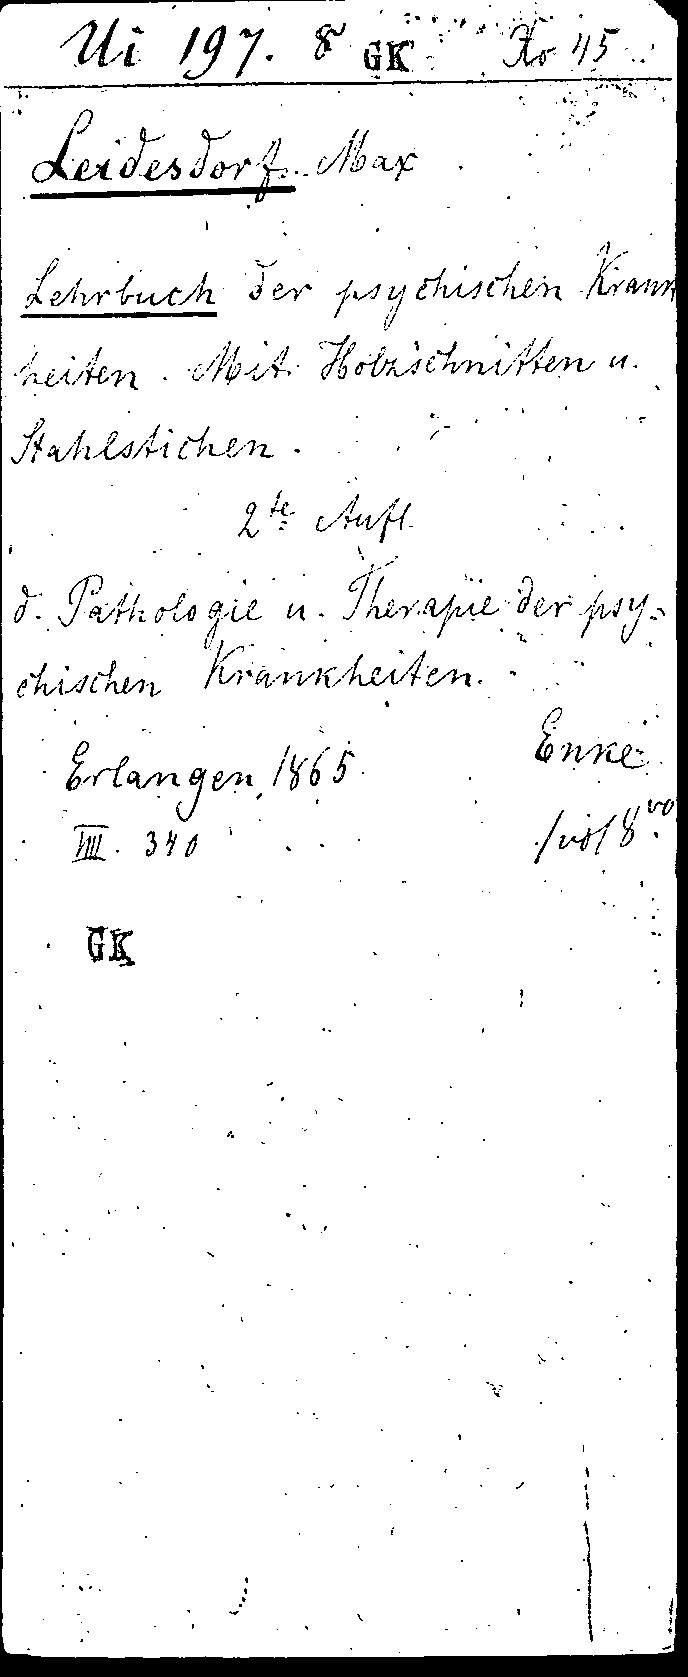 Ui 197. 8 GK Xo 45
Leidesdorf. Max
Lehrbuch der psychischen Krank
heiten. Mit Holzschnitten u.
Stahlstichen.
2te Aufl.
d. Pathologie u. Therapie der psy-
chischen Krankheiten.
Erlangen, 1865. Enke
VIII. 340 1 vol 8.vo
GK